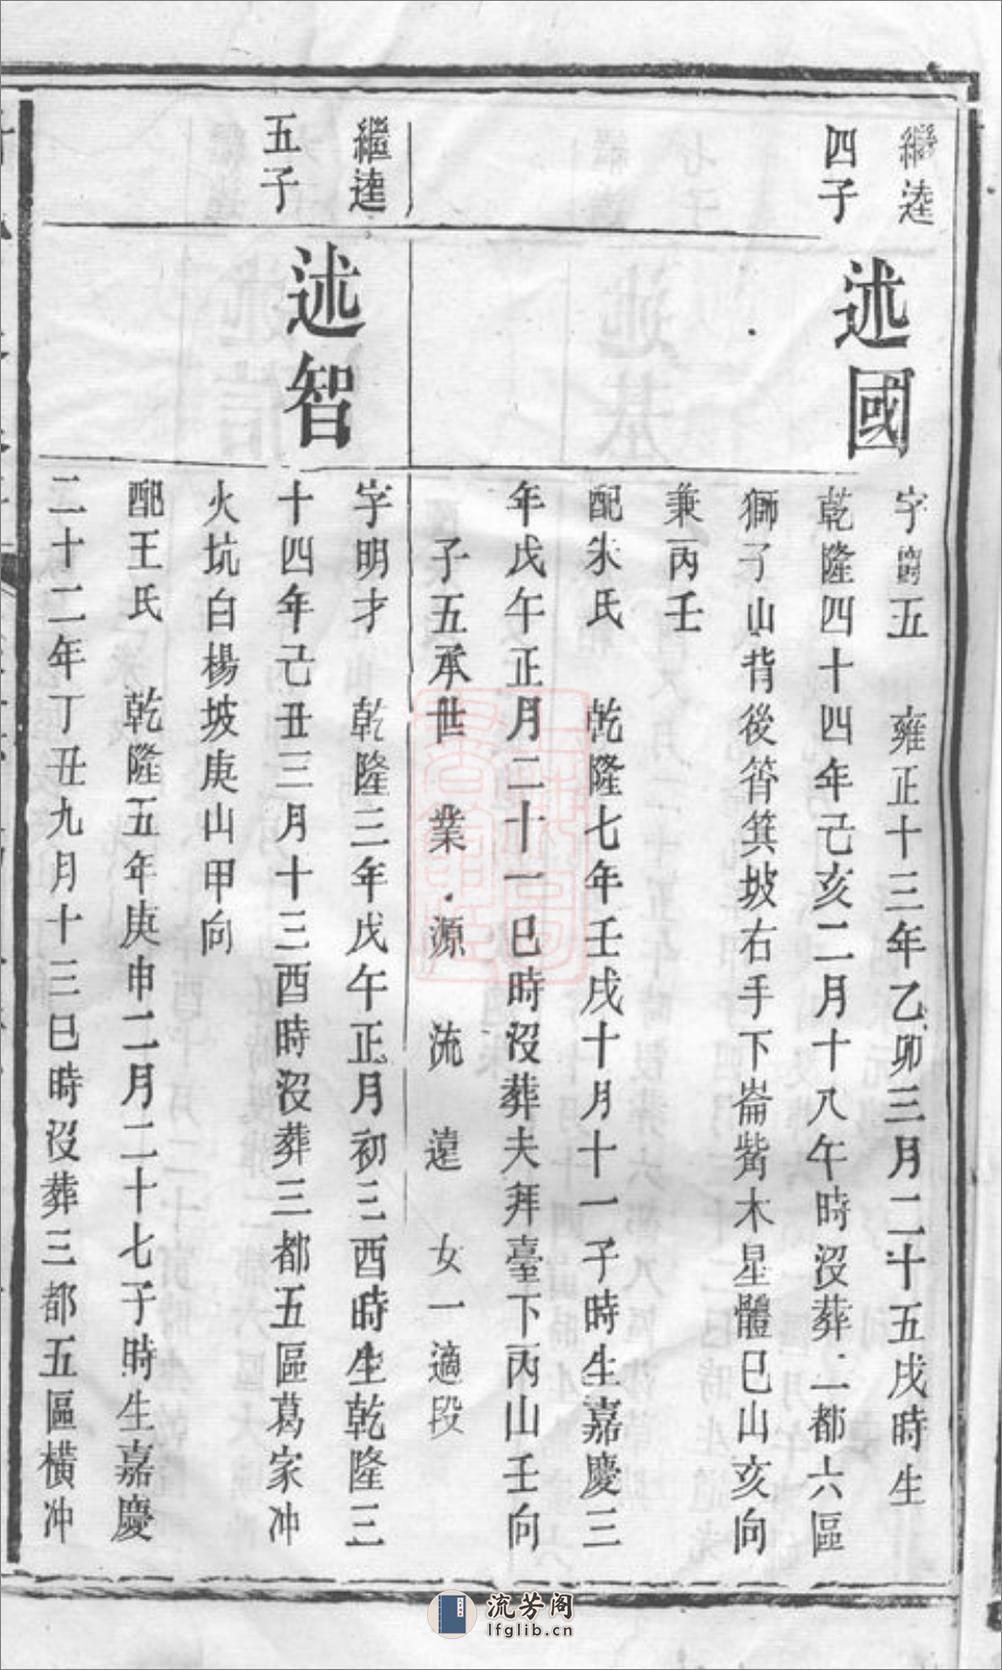 繼逵
四子
述國
字爵五　雍正十三年乙卯三月二十五戌時生
乾隆四十四年己亥二月十八午時沒葬二都六區
獅子山背後筲箕坡右手下崙觜木星體巳山亥向
兼丙壬
配朱氏　乾隆七年壬戌十月十一子時生嘉慶三
年戊午正月二十一巳時沒葬夫拜臺下丙山壬向
子五承世　業　源　流　遠　女一適段
繼逵
五子
述智
字明才　乾隆三年戊午正月初三酉時生乾隆三
十四年己丑三月十三酉時沒葬三都五區葛家冲
火坑白楊坡庚山甲向
配王氏　乾隆五年庚申二月二十七子時生嘉慶
二十二年丁丑九月十三巳時沒葬三都五區橫冲
流芳阁
lfglib.cn